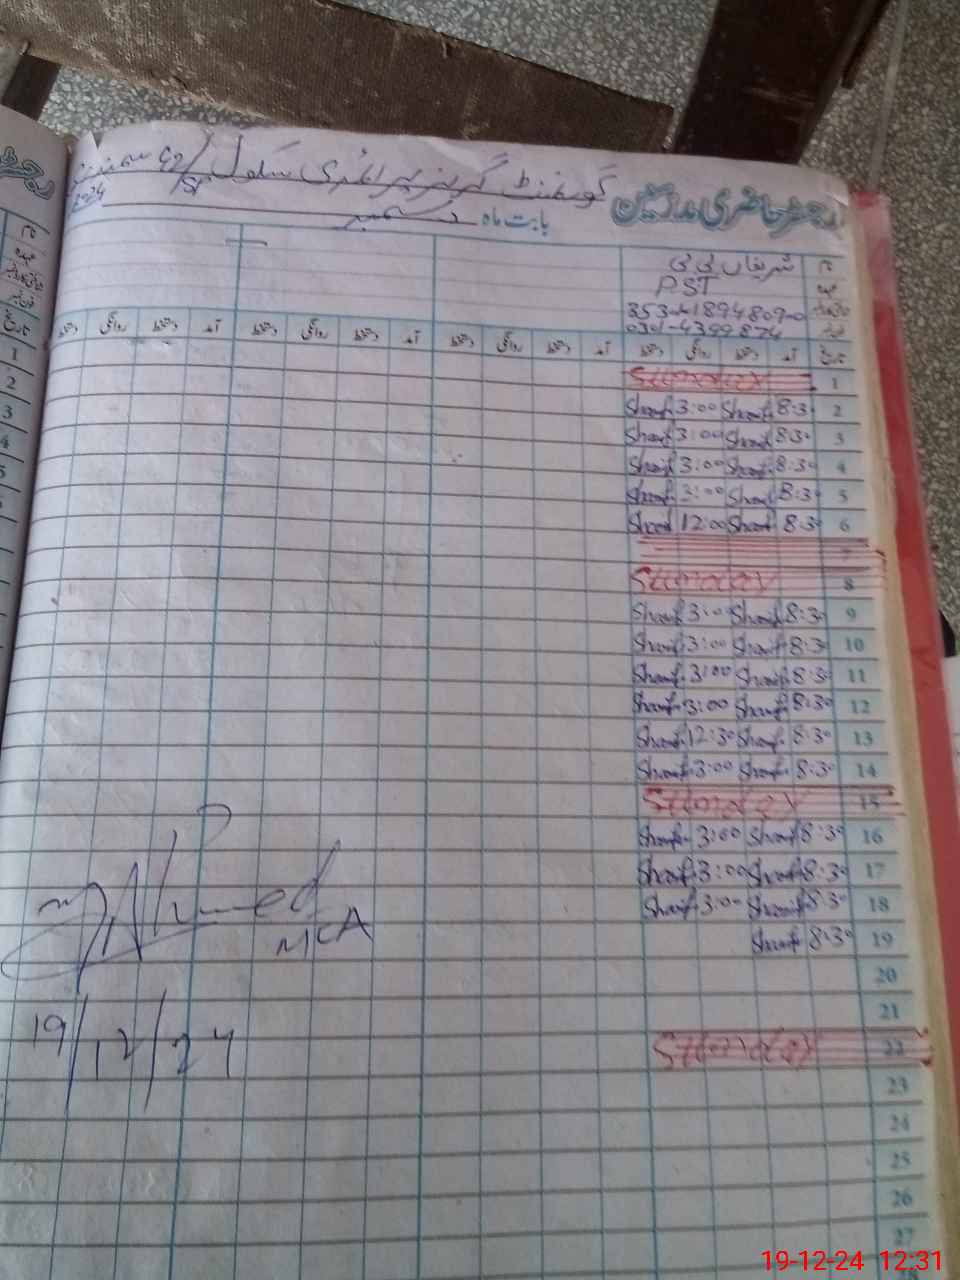 رجسٹر حاضری مدرسین گورنمنٹ گرلز پرائمری سکول
بابت ماہ دسمبر 2024
نام شریفاں بی بی
عہدہ PST
فون نمبر 0301-4399874
تاریخ آمد دستخط روانگی دستخط آمد دستخط روانگی دستخط آمد دستخط روانگی دستخط آمد دستخط روانگی دستخط
1 Sunday
2 8:3 Sharif 3:00 Sharif
3 8:30 Sharif 3:00 Sharif
4 8:30 Sharif 3:00 Sharif
5 8:30 Sharif 3:00 Sharif
6 8:30 Sharif 12:00 Sharif
7
8 Sunday
9 8:30 Sharif 3:00 Sharif
10 8:30 Sharif 3:00 Sharif
11 8:30 Sharif 3:00 Sharif
12 8:30 Sharif 3:00 Sharif
13 8:30 Sharif 12:30 Sharif
14 8:30 Sharif 3:00 Sharif
15 Sunday
16 8:30 Sharif 3:00 Sharif
17 8:30 Sharif 3:00 Sharif
18 8:30 Sharif 3:00 Sharif
19 8:30 Sharif
20
21
22 Sunday
23
24
25
26
27
Ahmed
MCA
19/12/24
نام
عہدہ
فون نمبر
تاریخ
1
2
3
4
5
19-12-24 12:31